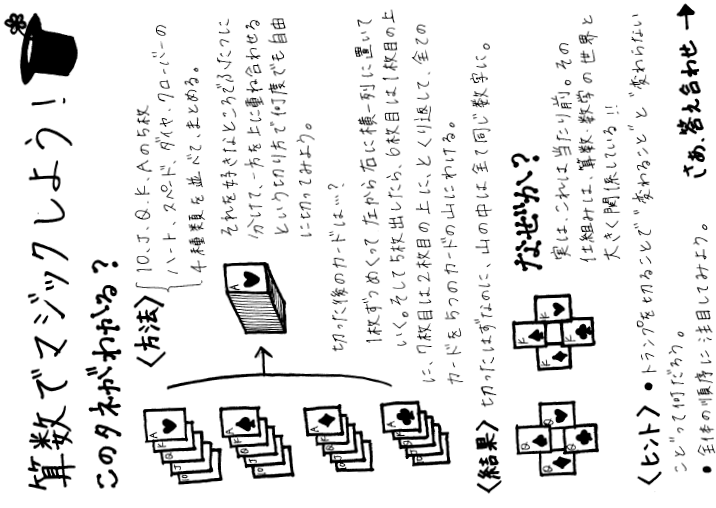 算数でマジックしよう!
このタネがわかる?
〈方法〉
10、J、Q、K、Aの5枚
ハート、スペード、ダイヤ、クローバーの
4種類を並べて、まとめる。
それを好きなところでふたつに
分けて、一方を上に重ね合わせる
という切り方で何度でも自由
に切ってみよう。
切った後のカードは…?
1枚ずつめくって左から右に横一列に置いて
いく。そして5枚出したら、6枚目は1枚目の上
に、7枚目は2枚目の上に、とくり返して、全ての
カードを5つのカードの山にわける。
〈結果〉切ったはずなのに、山の中は全て同じ数字に。
なぜか?
実は、これは当たり前。その
仕組みは、算数・数学の世界と
大きく関係している!!
〈ヒント〉・トランプを切ることで"変わること"と"変わらない
こと"って何だろう。
・全体の順序に注目してみよう。
さあ、答え合わせ→